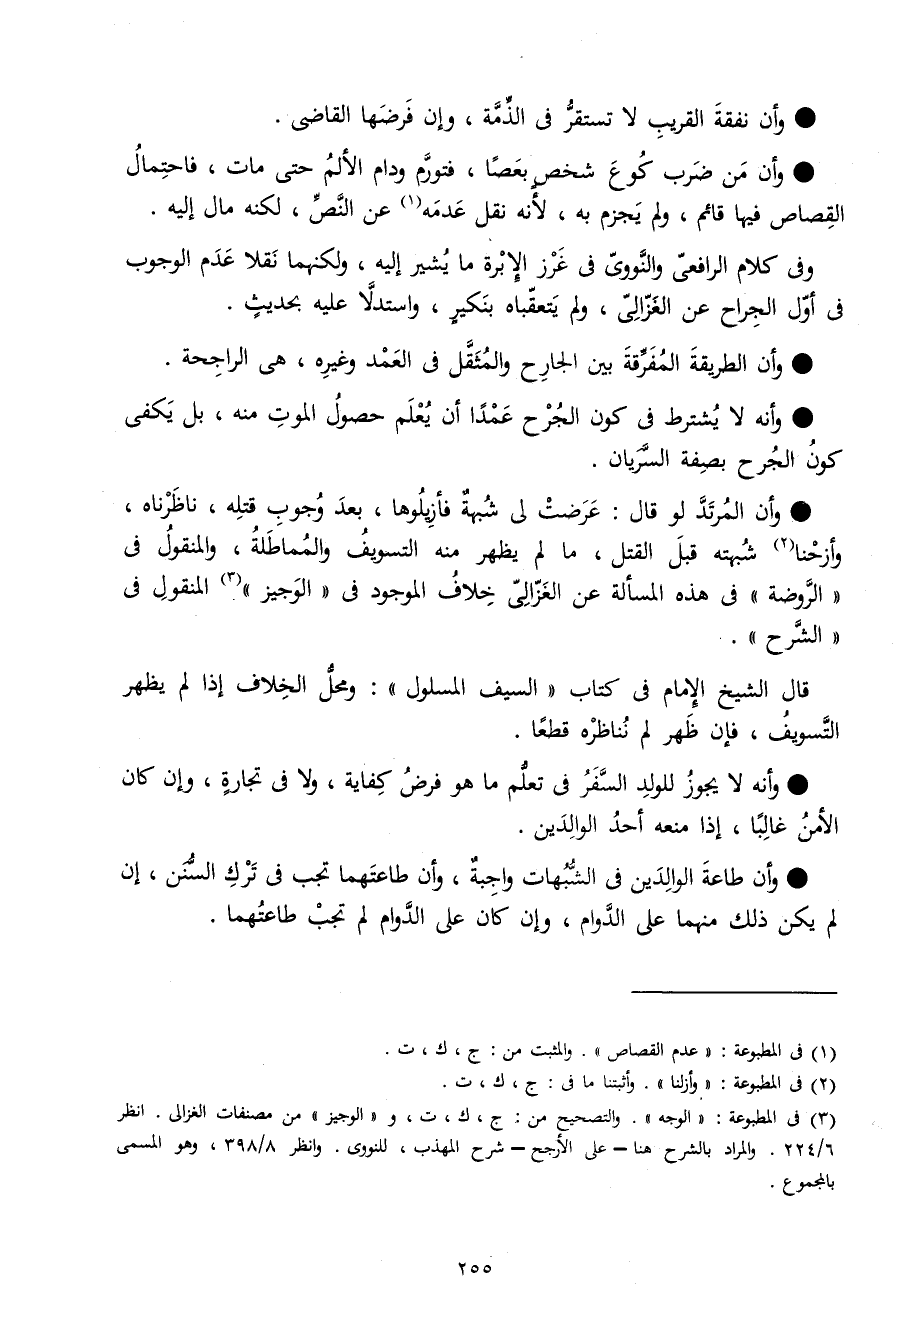 ● وأن نفقةَ القريبِ لا تستقرُّ فى الذِّمَّة ، وإن فَرضَها القاضى .
● وأن مَن ضَرب كُوعَ شخصٍ بعَصًا ، فتورَّم ودام الألمُ حتى مات ، فاحتِمالُ
القِصاص فيها قائم ، ولم يَجزم به ، لأنه نقل عَدمَه(١) عن النَّصِّ ، لكنه مال إليه .
وفى كلام الرافعىّ والنَّووىّ فى غَرْز الإِبْرة ما يُشير إليه ، ولكنهما نَقلا عَدَم الوجوب
فى أوّل الجِراح عن الغَزّالِىّ ، ولم يَتعقّباه بنَكيرٍ ، واستدلَّا عليه بحديثٍ .
● وأن الطريقةَ المُفَرِّقةَ بين الجارِح والمُثَقَّل فى العَمْد وغيرِه ، هى الراجحة .
● وأنه لا يُشترط فى كون الجُرْح عَمْدًا أن يُعْلَم حصولُ الموتِ منه ، بل يَكفى
كونُ الجُرح بصِفة السَّرَيان .
● وأن المُرتَدَّ لو قال : عَرَضتْ لى شُبهةٌ فأزِيلُوها ، بعدَ وُجوبِ قتلِه ، ناظَرْناه ،
وأزحْنا(٢) شُبهته قبلَ القتل ، ما لم يظهر منه التسويفُ والمُماطَلةُ ، والمنقولُ فى
« الرَّوضة » فى هذه المسألة عن الغَزّالِىّ خِلافُ الموجود فى « الوَجيز »(٣) المنقولِ فى
« الشَّرح » .
قال الشيخ الإِمام فى كتاب « السيف المسلول » : ومحلُّ الخِلاف إذا لم يظهر
التَّسويفُ ، فإن ظَهر لم نُناظرْه قطعًا .
● وأنه لا يجوزُ للولدِ السَّفَرُ فى تعلُّم ما هو فرضُ كِفاية ، ولا فى تجارةٍ ، وإن كان
الأمنُ غالِبًا ، إذا منعه أحدُ الوالِدَين .
● وأن طاعةَ الوالِدَين فى الشُّبُهات واجِبةٌ ، وأن طاعتَهما تجب فى تَرْكِ السُّنَن ، إن
لم يكن ذلك منهما على الدَّوام ، وإن كان على الدَّوام لم تجبْ طاعتُهما .
(١) فى المطبوعة : « عدم القصاص » . والمثبت من : ج ، ك ، ت .
(٢) فى المطبوعة : « وأزلنا » . وأثبتنا ما فى : ج ، ك ، ت .
(٣) فى المطبوعة : « الوجه » . والتصحيح من : ج ، ك ، ت ، و « الوجيز » من مصنفات الغزالى . انظر
٢٢٤/٦ . والمراد بالشرح هنا – على الأرجح – شرح المهذب ، للنووى . وانظر ٣٩٨/٨ ، وهو المسمى
بالمجموع .
٢٥٥